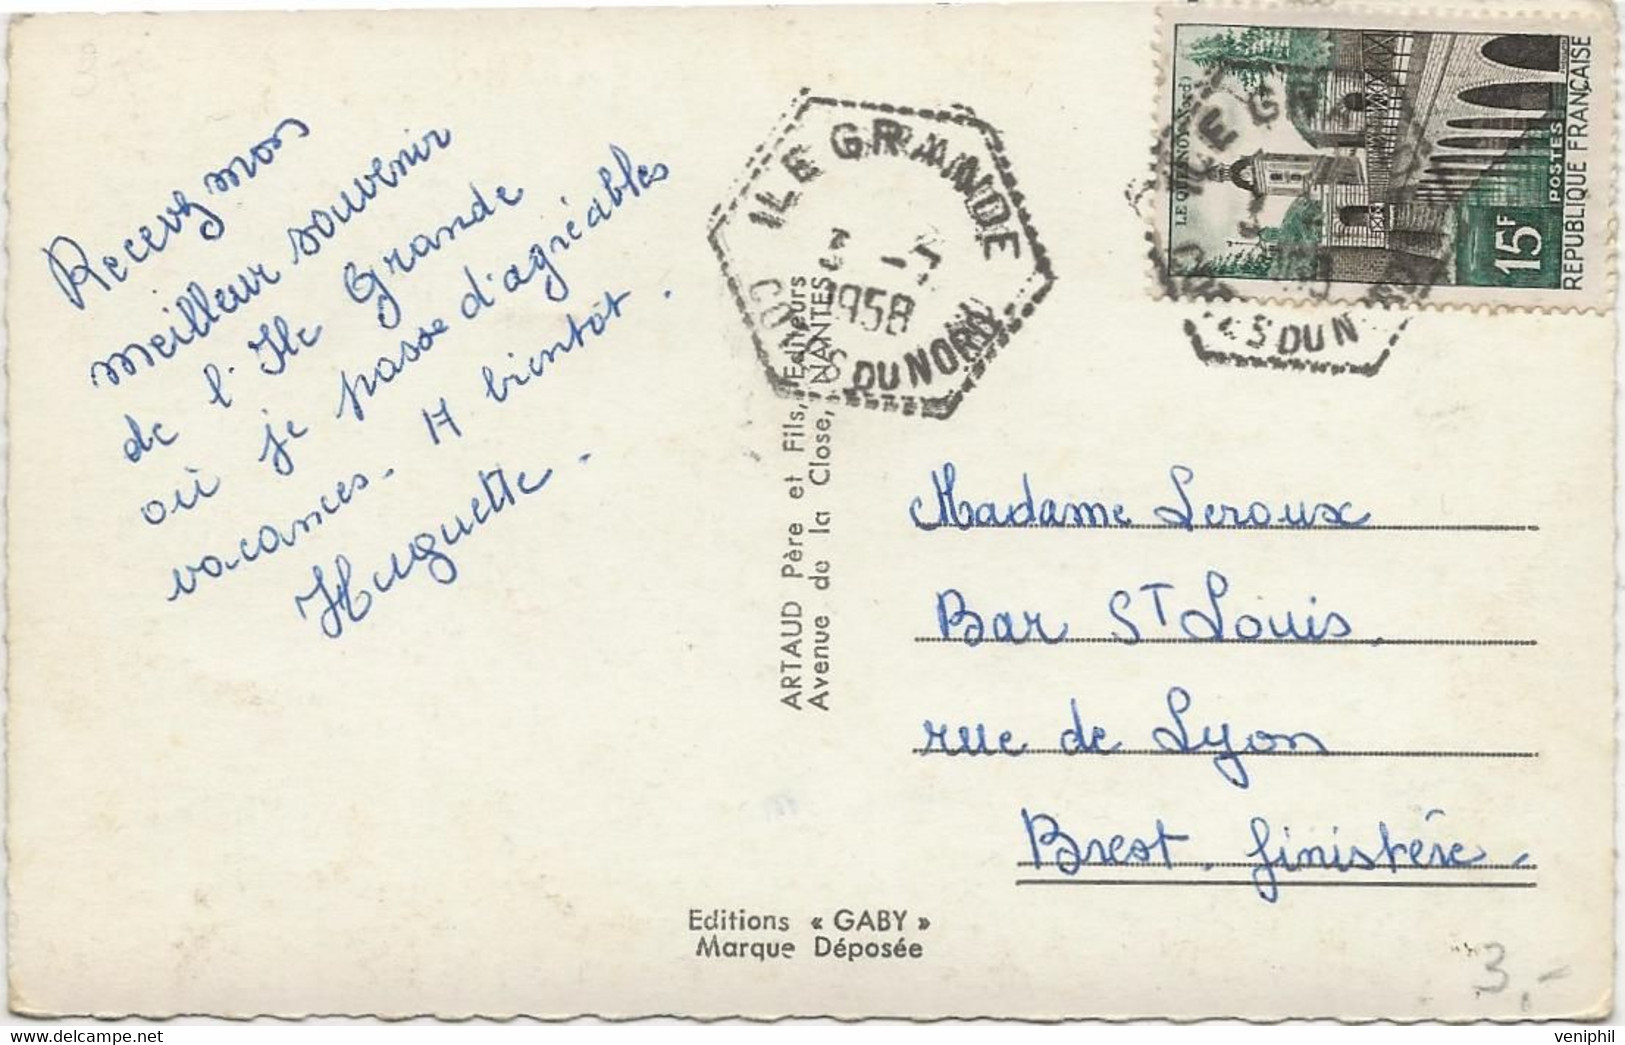 Recevez mon
meilleur souvenir
de l'Ile Grande
où je passe d'agréables
vacances. A bientôt.
Huguette.
ILE GRANDE
1958
COTES DU NORD
ARTAUD Père et Fils, Editeurs
Avenue de la Close, NANTES
LE QUESNOY (Nord)
15F
POSTES
REPUBLIQUE FRANÇAISE
S DU N
Madame Leroux
Bar St Louis.
rue de Lyon
Brest. finistère.
Editions « GABY »
Marque Déposée
3,-
veniphil